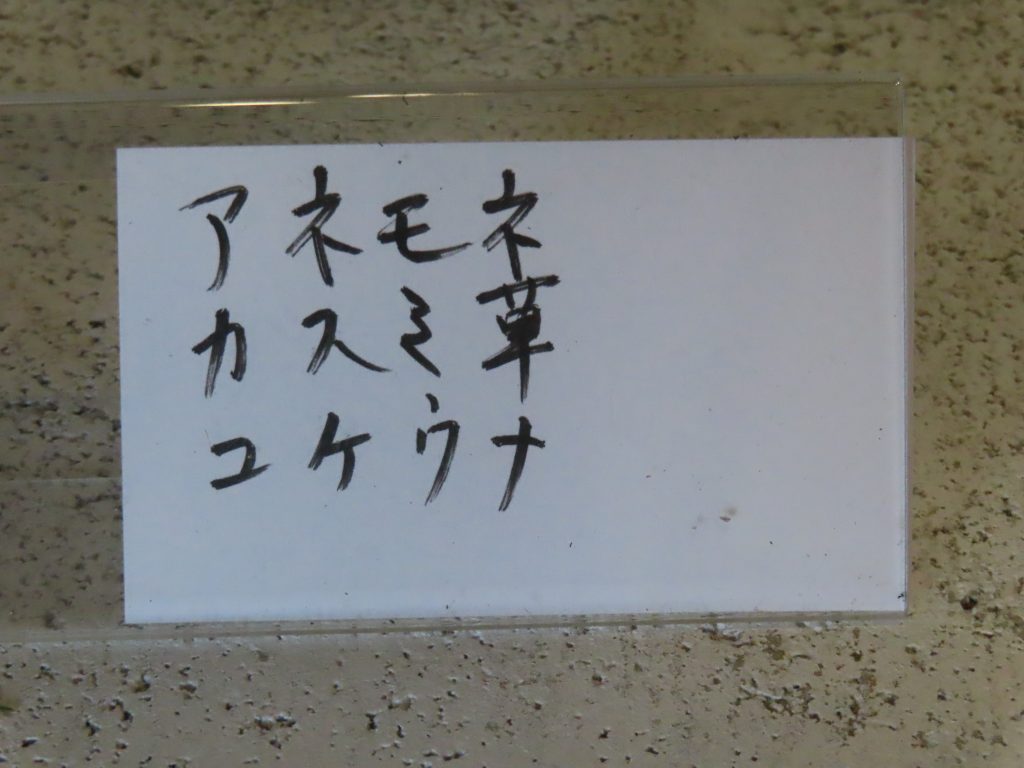 アネモネ
カスミ草
ユケウナ